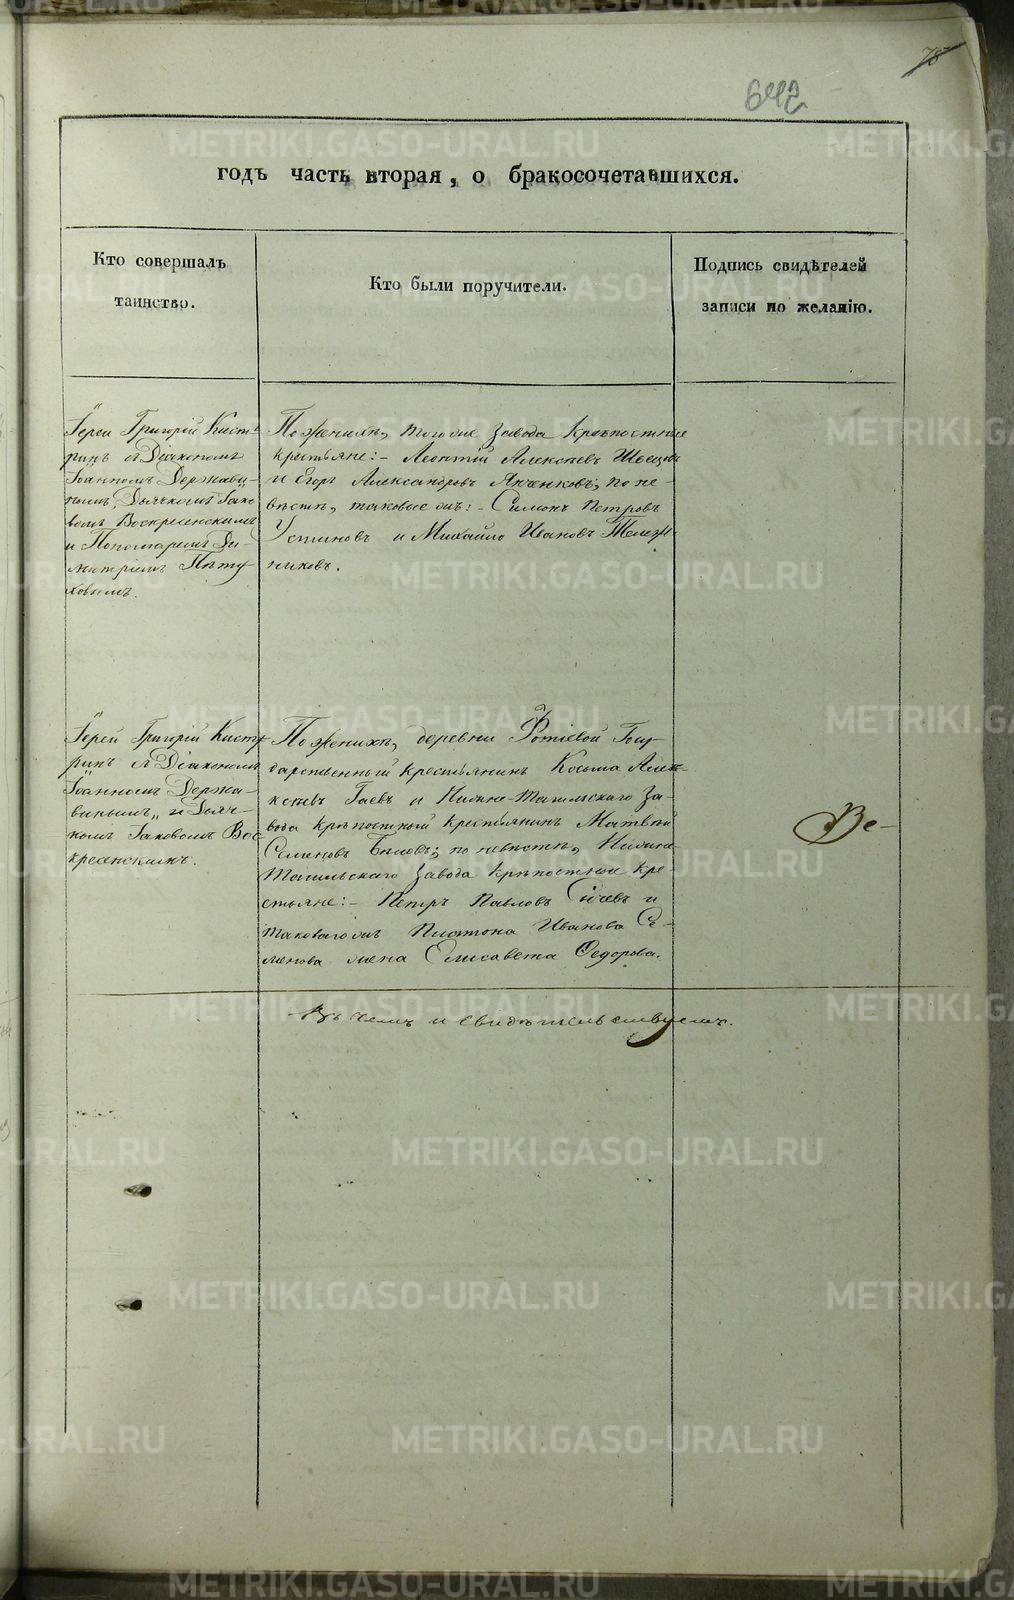 78
642
годъ часть вторая, о бракосочетавшихся.
Кто совершалъ
таинство.
Кто были поручители.
Подпись свидѣтелей
записи по желанію.
Іерей Григорій Кист-
ринъ съ Діакономъ
Іоанномъ Держави-
нымъ, Дьячкомъ Іако-
вомъ Воскресенскимъ
и Пономаремъ Ди-
митріемъ Пѣту-
ховымъ.
По женихѣ, того же завода крѣпостные
крестьяне:- Леонтій Алексѣевъ Швецовъ
и Егоръ Александровъ Янченковъ; по не-
вѣстѣ, таковые жъ:- Симонъ Петровъ
Устиновъ и Михайло Ивановъ
никовъ.
Іерей Григорій Кист-
ринъ съ Діакономъ
Іоанномъ Держа-
винымъ, и Дьяч-
комъ Іаковомъ Вос-
кресенскимъ.
По женихѣ, деревни Госу-
дарственный крестьянинъ Косьма Алек-
сѣевъ Гаевъ и Нижне-Тагильскаго За-
вода крѣпостной крестьянинъ Матвей
Семеновъ Бѣловъ; по невѣстѣ, Нижне
Тагильскаго Завода крѣпостные кре-
стьяне:- Петръ Павловъ и
таковаго жъ Платона Иванова Се-
менова жена Елисавета Федорова.
Ве-
Въ чемъ и свидѣтельствуемъ.
METRIKI.GASO-URAL.RU